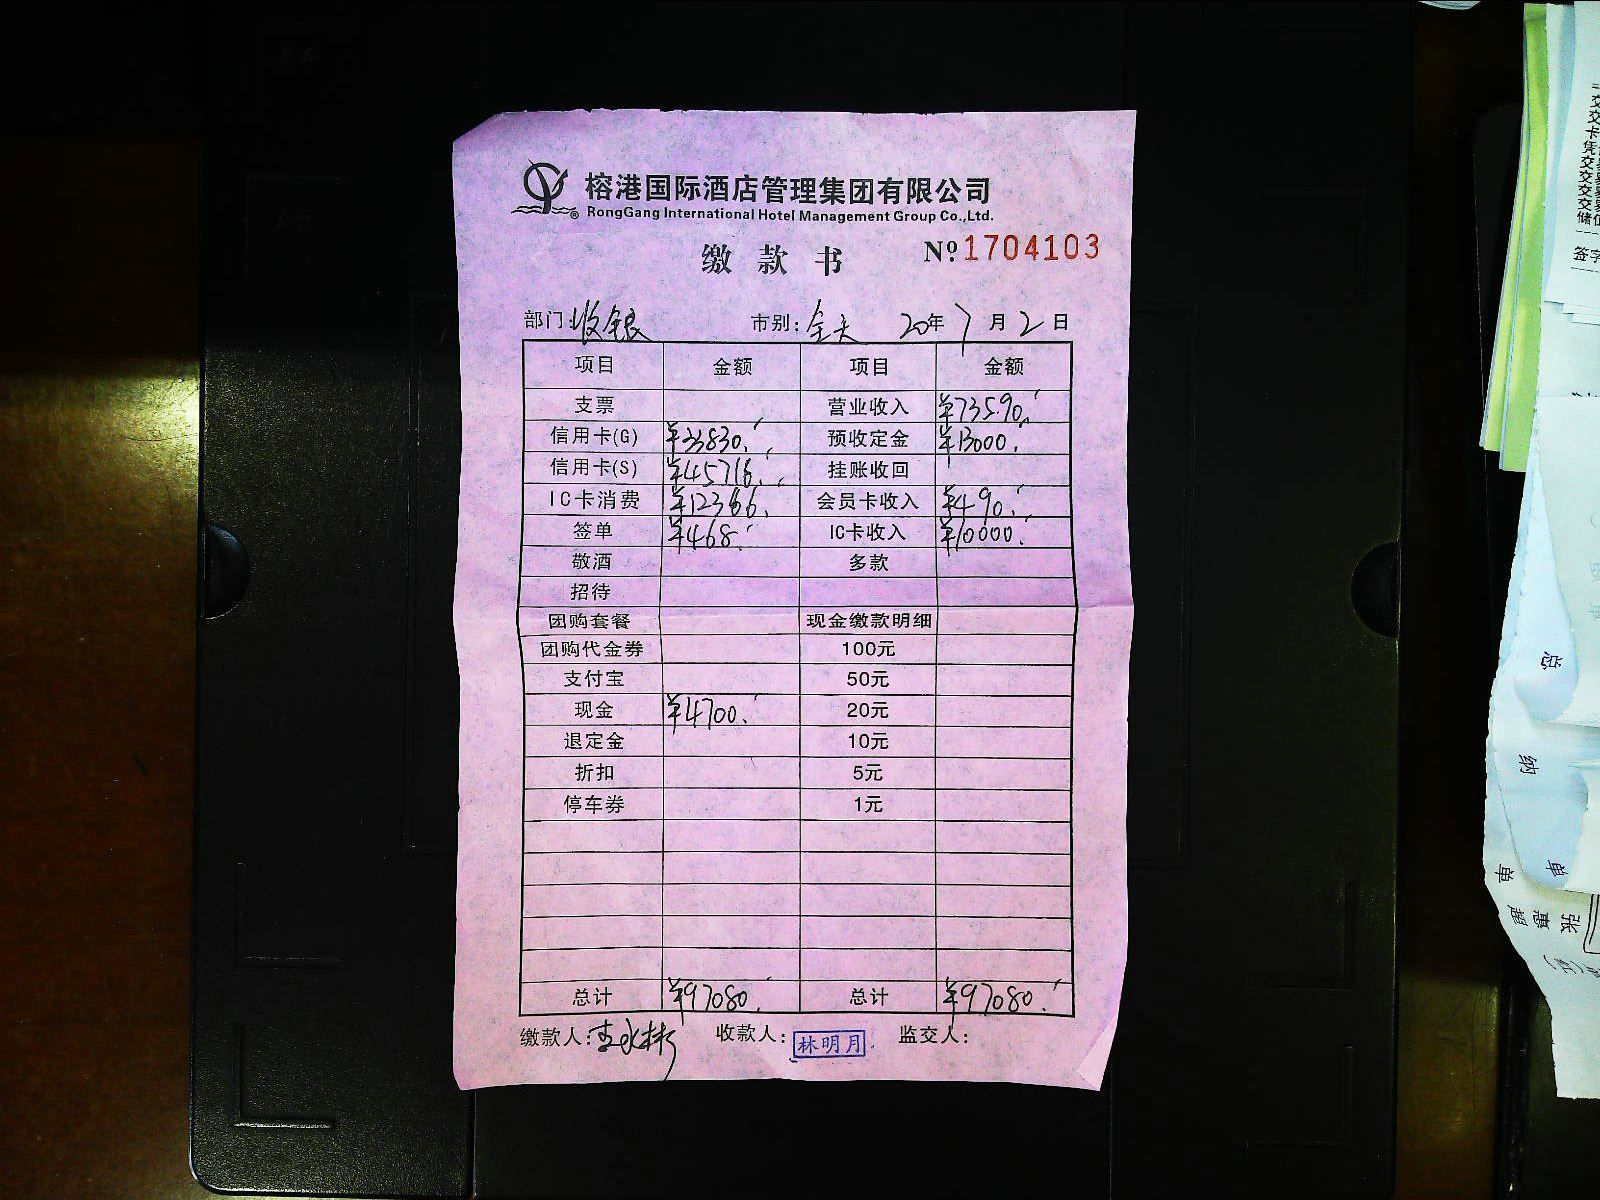 榕港国际酒店管理集团有限公司
® RongGang International Hotel Management Group Co.,Ltd.
缴款书 Nº 1704103
部门:收银 市别:全天 20年7月2日
项目 金额 项目 金额
支票 营业收入 ¥73590.
信用卡(G) ¥33830. 预收定金 ¥13000.
信用卡(S) ¥45716. 挂账收回
IC卡消费 ¥12366. 会员卡收入 ¥490.
签单 ¥468. IC卡收入 ¥10000.
敬酒 多款
招待
团购套餐 现金缴款明细
团购代金券 100元
支付宝 50元
现金 ¥4700. 20元
退定金 10元
折扣 5元
停车券 1元
总计 ¥97080. 总计 ¥97080.
缴款人: 收款人: 林明月 监交人:
交
交
卡
凭
交
交
交
交
储
签字
总
纳
单
单
张惠